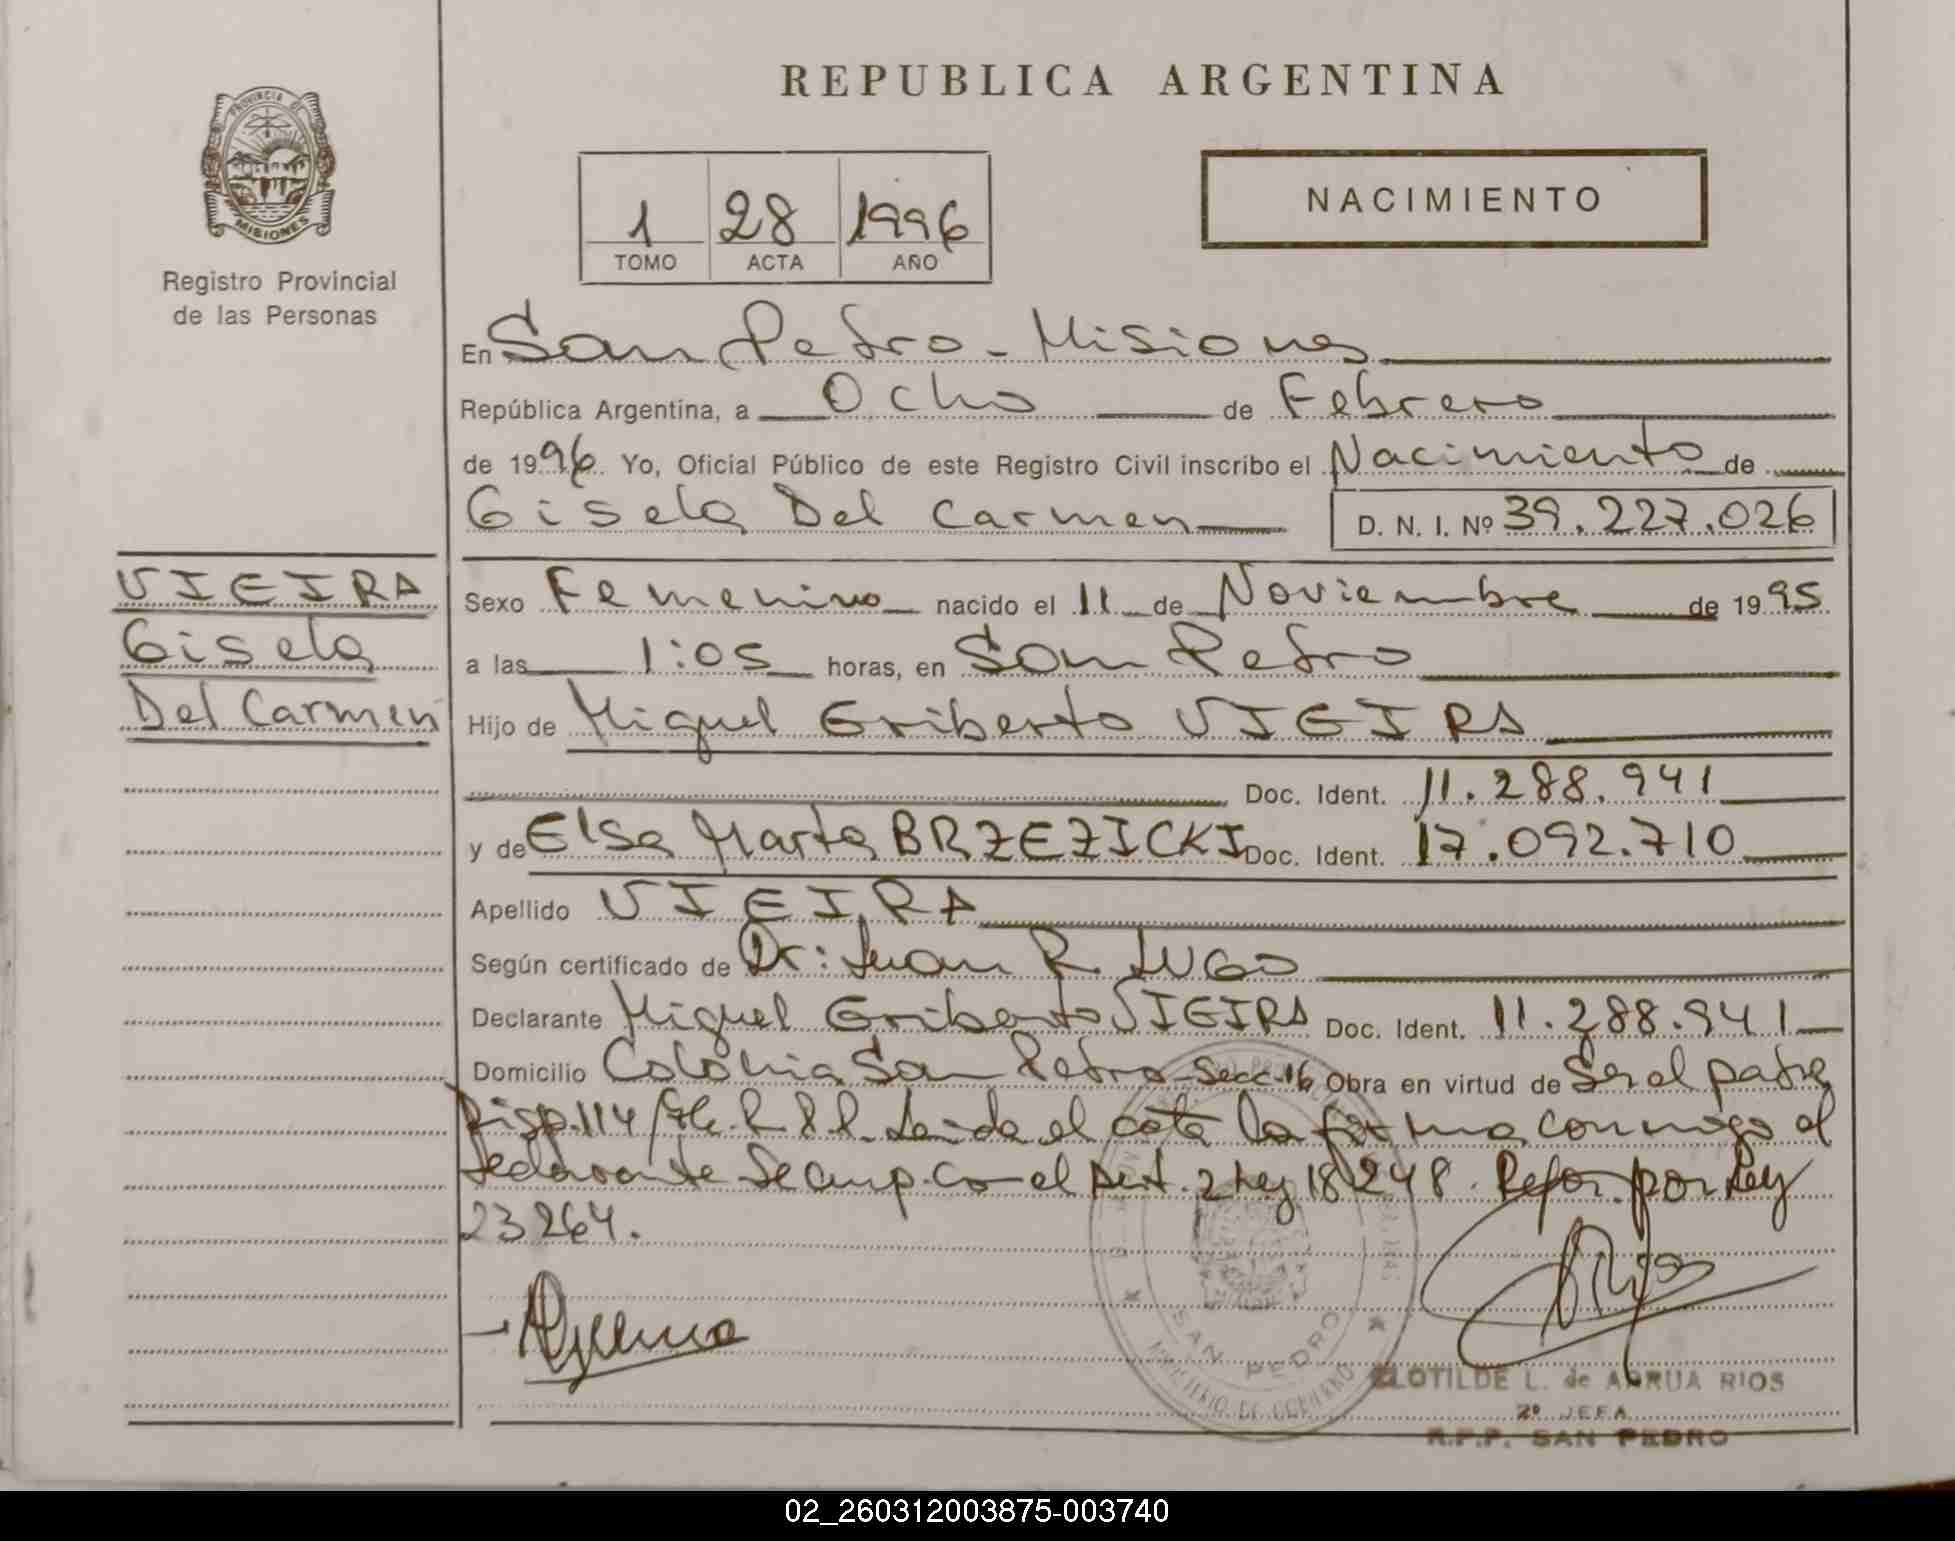 REPUBLICA ARGENTINA
PROVINCIA DE
MISIONES
Registro Provincial
de las Personas
1 28 1996
TOMO ACTA AÑO
NACIMIENTO
En San Pedro - Misiones
República Argentina, a Ocho de Febrero
de 1996 Yo, Oficial Público de este Registro Civil inscribo el Nacimiento de
Gisela Del Carmen D. N. I. Nº 39.227.026
VIEIRA
Gisela
Del Carmen
Sexo Femenino nacido el 11 de Noviembre de 1995
a las 1:05 horas, en San Pedro
Hijo de Miguel Eriberto VIEIRA
Doc. Ident. 11.288.941
y de Elsa Marta BRZEZICKI Doc. Ident. 17.092.710
Apellido VIEIRA
Según certificado de Dr: Juan R. LUGO
Declarante Miguel Eriberto VIEIRA Doc. Ident. 11.288.941
Domicilio Colonia San Pedro Secc-16 Obra en virtud de Ser el padre
Disp. 114 Leida el acta la firma conmigo el
declarante Se cump. con el Art. 2 Ley 18248. Refor. por Ley
23264.
SAN PEDRO
MINISTERIO DE GOBIERNO
CLOTILDE L. de ARRUA RIOS
2º JEFA
R.P.P. SAN PEDRO
02_260312003875-003740